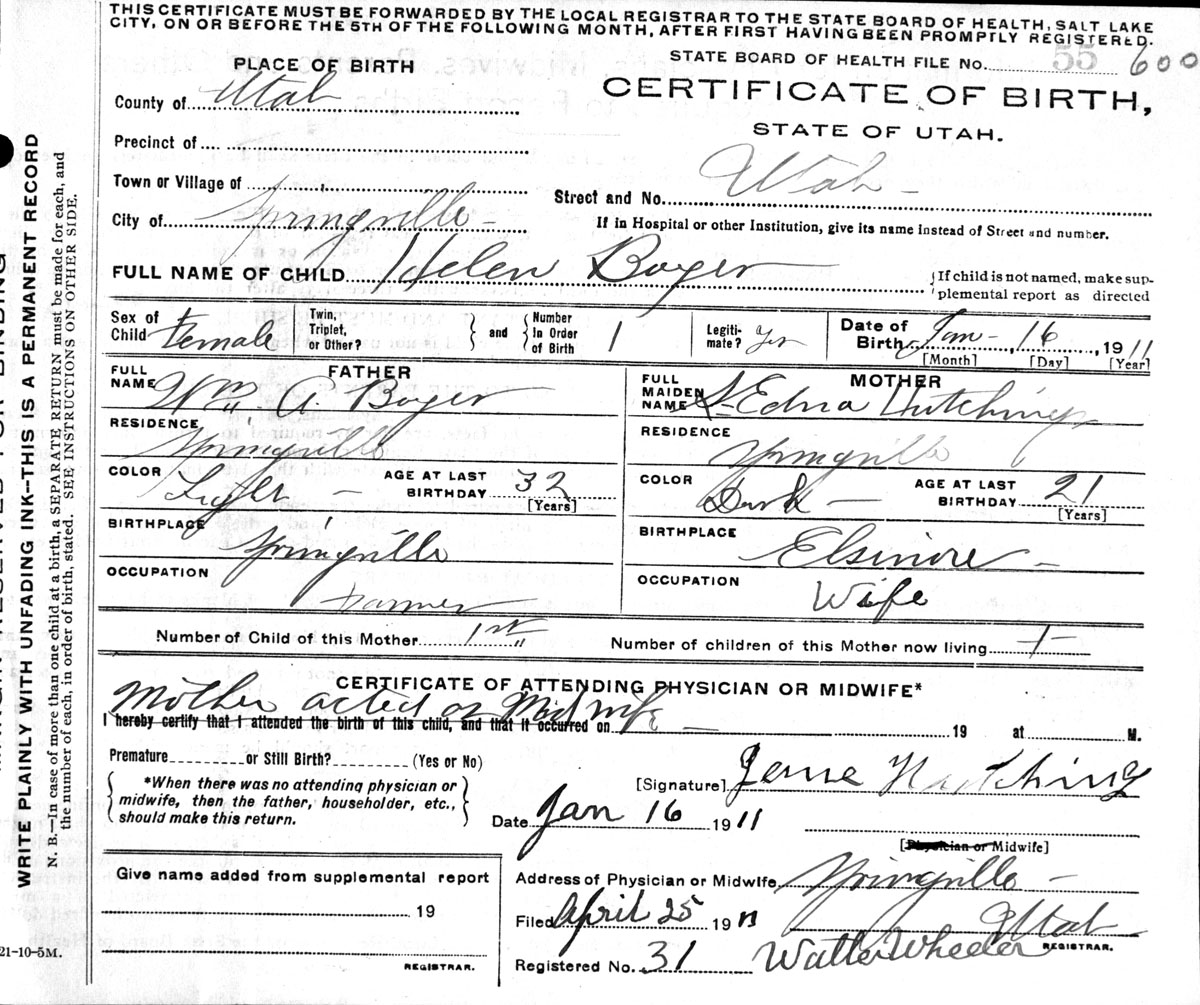 THIS CERTIFICATE MUST BE FORWARDED BY THE LOCAL REGISTRAR TO THE STATE BOARD OF HEALTH, SALT LAKE
CITY, ON OR BEFORE THE 5TH OF THE FOLLOWING MONTH, AFTER FIRST HAVING BEEN PROMPTLY REGISTERED.
STATE BOARD OF HEALTH FILE No. 55 600
PLACE OF BIRTH
CERTIFICATE OF BIRTH,
STATE OF UTAH.
County of Utah
Precinct of
Town or Village of
Street and No. Utah -
City of Springville -
If in Hospital or other Institution, give its name instead of Street and number.
FULL NAME OF CHILD Helen Boyer
If child is not named, make sup-
plemental report as directed
Sex of Child Female
Twin, Triplet, or Other?
and
Number in Order of Birth 1
Legiti-mate? Yes
Date of Birth Jan - 16, 1911
[Month] [Day] [Year]
FATHER
FULL NAME Wm. A. Boyer
RESIDENCE Springville
COLOR Light -
AGE AT LAST BIRTHDAY 32
[Years]
BIRTHPLACE Springville
OCCUPATION Farmer
MOTHER
FULL MAIDEN NAME Edna Hutchings
RESIDENCE Springville
COLOR Dark -
AGE AT LAST BIRTHDAY 21
[Years]
BIRTHPLACE Elsinore -
OCCUPATION Wife
Number of Child of this Mother 1st
Number of children of this Mother now living 1-
CERTIFICATE OF ATTENDING PHYSICIAN OR MIDWIFE*
Mother acted as Midwife -
I hereby certify that I attended the birth of this child, and that it occurred on 19 at M.
Premature or Still Birth? (Yes or No)
*When there was no attending physician or
midwife, then the father, householder, etc.,
should make this return.
[Signature] Hutching
Date Jan 16 1911
[Physician or Midwife]
Give name added from supplemental report
19
REGISTRAR.
Address of Physician or Midwife Springville -
Utah
Filed April 25 1911
Walter Wheeler REGISTRAR.
Registered No. 31
WRITE PLAINLY WITH UNFADING INK—THIS IS A PERMANENT RECORD
N. B.—In case of more than one child at a birth, a SEPARATE RETURN must be made for each, and
the number of each, in order of birth, stated. SEE INSTRUCTIONS ON OTHER SIDE.
21-10-5M.